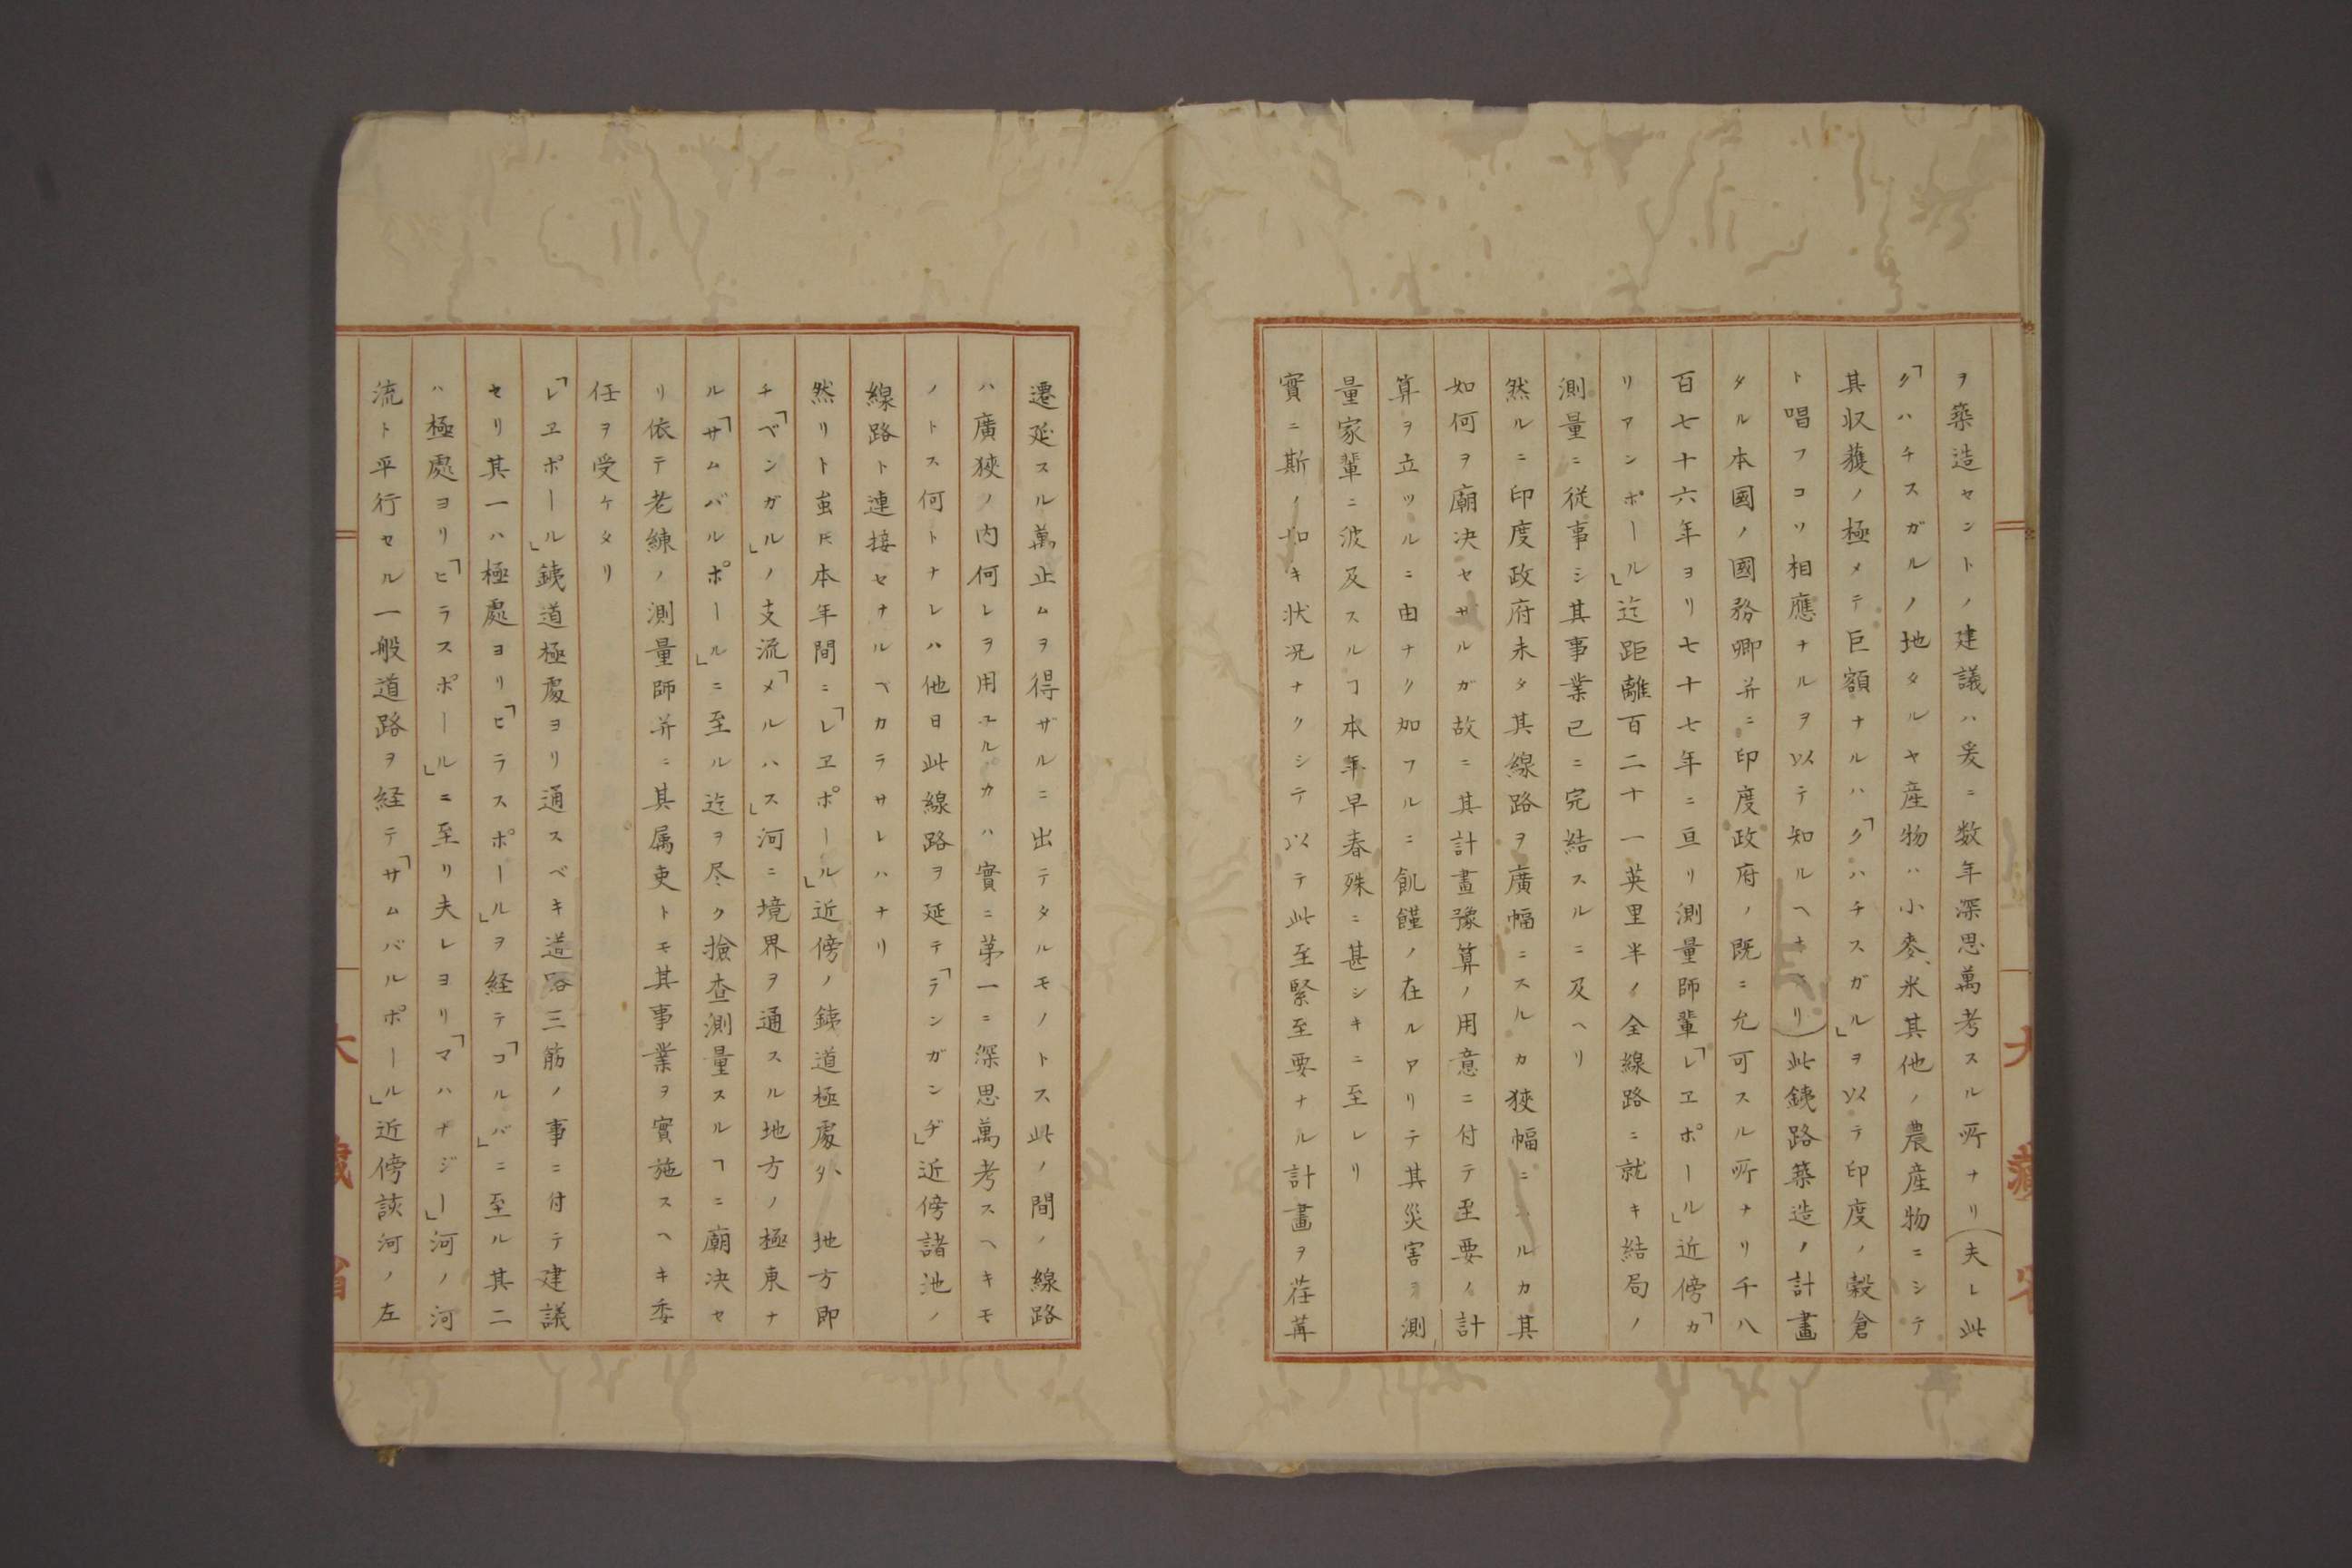 ヲ築造セントノ建議ハ爰ニ数年深思萬考スル所ナリ(夫レ此
「クハチスガルノ地タルヤ産物ハ小麥、米其他ノ農産物ニシテ
其収獲ノ極メテ巨額ナルハ「クハチスガル」ヲ以テ印度ノ穀倉
ト唱フコソ相應ナルヲ以テ知ルヘキナリ)此銕路築造ノ計畫
タル本國ノ國務卿并ニ印度政府ノ既ニ允可スル所ナリ千八
百七十六年ヨリ七十七年ニ亘リ測量師輩「レヱポール」近傍「カ
リアンポール」迄距離百二十一英里半ノ全線路ニ就キ結局ノ
測量ニ従事シ其事業已ニ完結スルニ及ヘリ
然ルニ印度政府未タ其線路ヲ廣幅ニスルカ狹幅ニスルカ其
如何ヲ廟決セサルガ故ニ其計畫豫算ノ用意ニ付テ至要ノ計
算ヲ立ツルニ由ナク加フルニ飢饉ノ在ルアリテ其災害ヲ測
量家輩ニ波及スルヿ本年早春殊ニ甚シキニ至レリ
實ニ斯ノ如キ状况ナクシテ以テ此至緊至要ナル計畫ヲ荏苒
遷延スル萬止ムヲ得ザルニ出テタルモノトス此ノ間ノ線路
ハ廣狹ノ内何レヲ用ユルカハ實ニ第一ニ深思萬考スヘキモ
ノトス何トナレハ他日此線路ヲ延テ「ランガンヂ」近傍諸池ノ
線路ト連接セナルヘカラサレハナリ
然リト虽𪜈本年間ニ「レヱポール」近傍ノ銕道極處タ、地方即
チ「ベンガル」ノ支流「メルハス」河ニ境界ヲ通スル地方ノ極東ナ
ル「サムバルポール」ニ至ル迄ヲ尽ク撿査測量スルヿニ廟决セ
リ依テ老練ノ測量師并ニ其属吏トモ其事業ヲ實施スヘキ委
任ヲ受ケタリ
「レヱポール」銕道極處ヨリ通スベキ道路三筋ノ事ニ付テ建議
セリ其一ハ極處ヨリ「ビラスポール」ヲ経テ「コルバ」ニ至ル其二
ハ極處ヨリ「ヒラスポール」ニ至リ夫レヨリ「マハナジー」河ノ河
流ト平行セル一般道路ヲ経テ「サムバルポール」近傍該河ノ左
大藏省